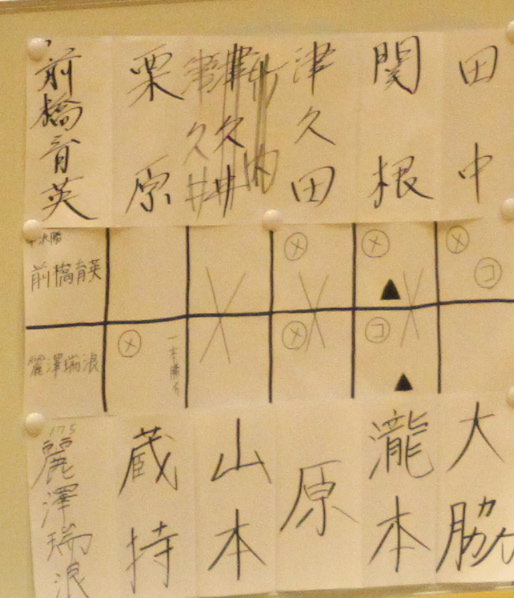 田中
関根
津久田
栗原
前橋育英
決勝
前橋育英
メ
メ
メ
コ
▲
麗澤瑞浪
メ
一本勝ち
メ
コ
▲
大脇
瀧本
原
山本
蔵持
麗澤瑞浪